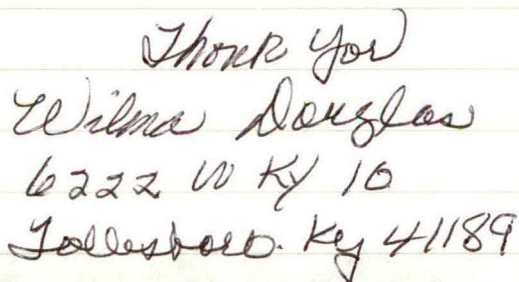 Thank You
Wilma Douglas
6222 W KY 10
Tollesboro. Ky 41189